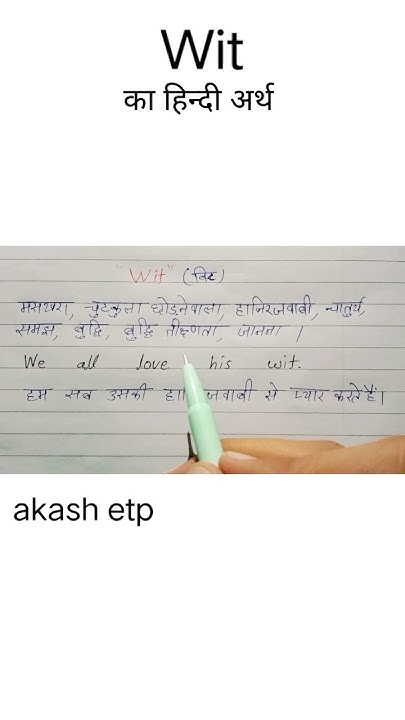 Wit
का हिन्दी अर्थ
"Wit" (विट)
मसखरा, चुटकुला छोड़नेवाला, हाजिरजवाबी, चातुर्य,
समझ, बुद्धि, बुद्धि तीक्ष्णता, जानना ।
We all love his wit.
हम सब उसकी जवाबी से प्यार करते हैं।
akash etp